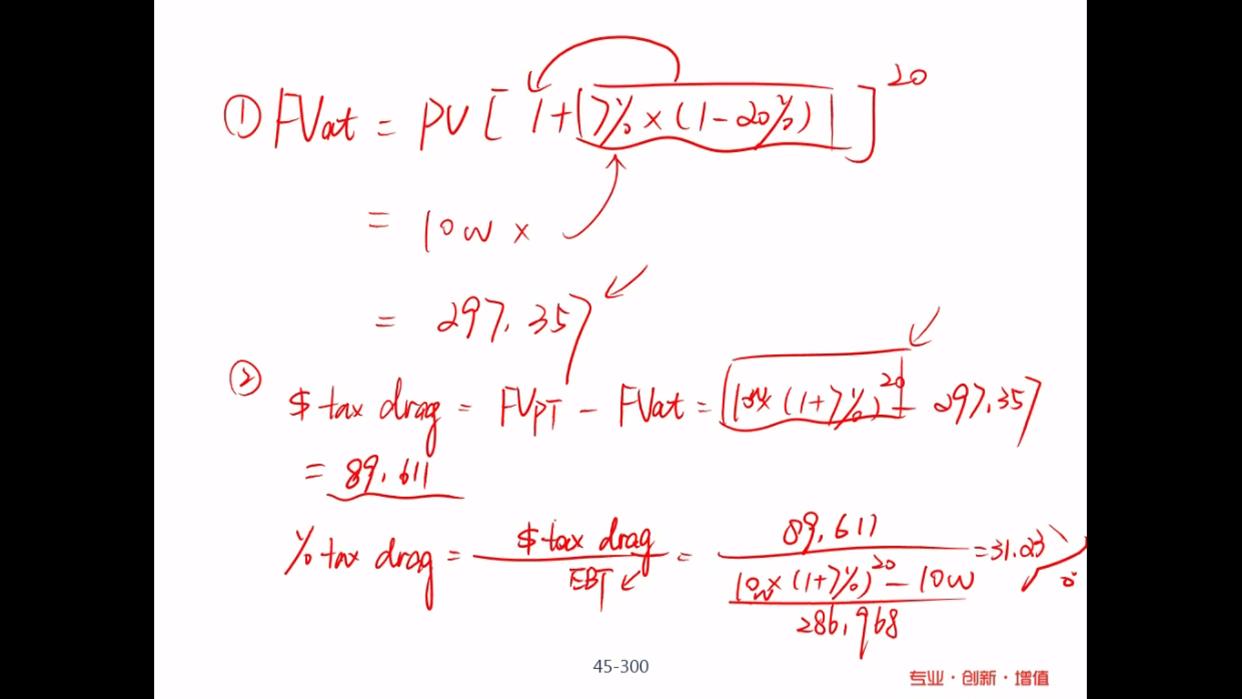 ① FVat = PV [ 1+(7%×(1-20%) ]^20
= 10w ×
= 297.357
② $ tax drag = FVPT - FVat = [10w×(1+7%)^20] - 297.357
= 89.611
% tax drag = $ tax drag / EBT = 89.611 / 10w×(1+7%)^20 - 10w = 31.23%
286.968
45-300
专业·创新·增值